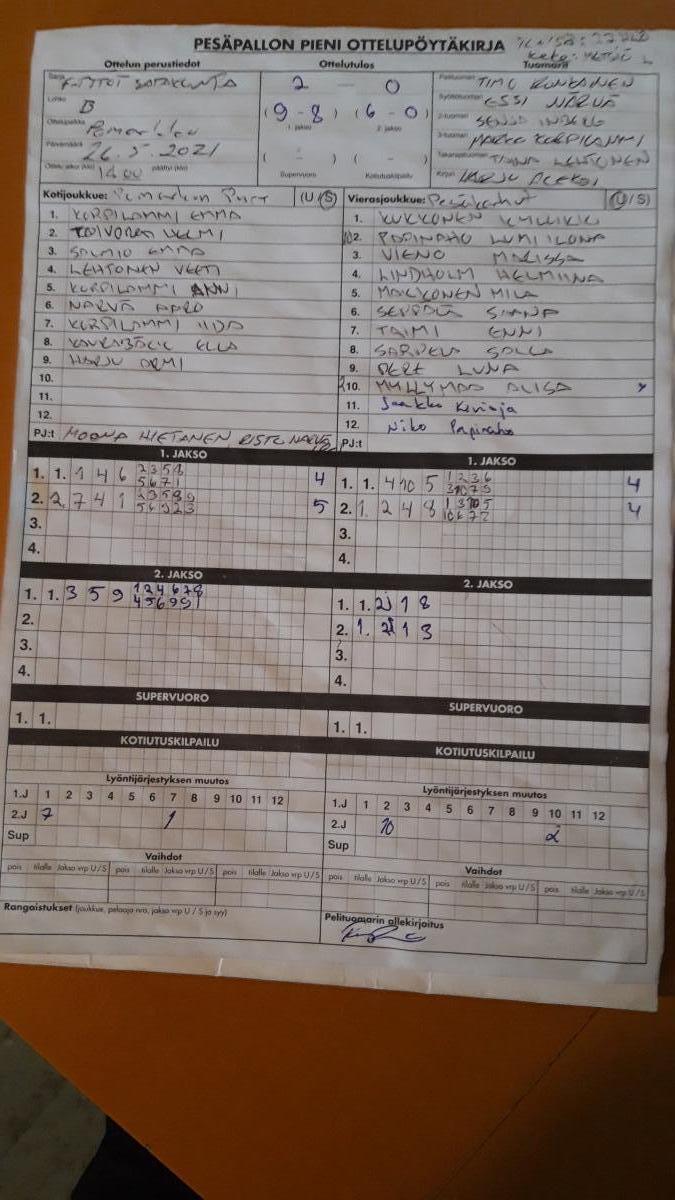 PESÄPALLON PIENI OTTELUPÖYTÄKIRJA
Ottelun perustiedot
Ottelutulos
Tuomarit
Sarja F-TYTÖT SATAKUNTA
Lohko B
Ottelupaikka Pomarkku
Päivämäärä 26.5.2021
Ottelu alkoi (klo) 14.00 päättyi (klo)
2 - 0
(9-8) (6-0)
1. jakso 2. jakso
( - ) ( - )
Supervuoro Kotiutuskilpailu
Pelituomari TIMO RONKAINEN
Syöttötuomari ESSI NÄRVÄ
2-tuomari SENJA INBERG
3-tuomari MARKO KORPILAMMI
Takarajatuomari TIINA LEHTONEN
Kirjuri HARJU ALEKSI
Kotijoukkue: Pomarkun Pyry (U/S)
1. KORPILAMMI EMMA
2. TOIVONEN VELMI
3. SALMIO EMMA
4. LEHTONEN VEETI
5. KORPILAMMI ANNI
6. NÄRVÄ AARO
7. KORPILAMMI IIDA
8. ELLA
9. HARJU ARMI
10.
11.
12.
PJ:t MOONA HIETANEN, RISTO NÄRVÄ
Vierasjoukkue: Pesäkarhut (U/S)
1. KUKKONEN KYLLIKKI
10 2. PAPINAHO LUMI ILONA
3. VIENO MALISSA
4. LINDHOLM HELMIINA
5. MAKKONEN MILA
6. SEPPÄLÄ
7. TAIMI ENNI
8. SALLA
9. LUNA
2 10. MYLLYMAA ALISA
11. Jaakko
12. Niko Papinaho
PJ:t
1. JAKSO
1. 1. 1 4 6 2 3 5 8 4
5 6 7 1
2. 2. 7 4 1 2 3 5 8 9 5
3.
4.
1. JAKSO
1. 1. 4 10 5 1 2 3 6 4
3 10 7 9
2. 1. 2 4 8 1 3 10 5 4
10 6 7 2
3.
4.
2. JAKSO
1. 1. 3 5 9 1 2 4 6 7 8
4 5 6 9 9 1
2.
3.
4.
2. JAKSO
1. 1. 2 1 8
2. 1. 2 1 3
3.
4.
SUPERVUORO
1. 1.
SUPERVUORO
1. 1.
KOTIUTUSKILPAILU
KOTIUTUSKILPAILU
Lyöntijärjestyksen muutos
1.J 1 2 3 4 5 6 7 8 9 10 11 12
2.J 7 1
Sup
Lyöntijärjestyksen muutos
1.J 1 2 3 4 5 6 7 8 9 10 11 12
2.J 10 2
Sup
Vaihdot
pois tilalle Jakso vrp U/S pois tilalle Jakso vrp U/S pois tilalle Jakso vrp U/S
Vaihdot
pois tilalle Jakso vrp U/S pois tilalle Jakso vrp U/S pois tilalle Jakso vrp U/S
Rangaistukset (joukkue, pelaaja nro, jakso vrp U / S ja syy)
Pelituomarin allekirjoitus